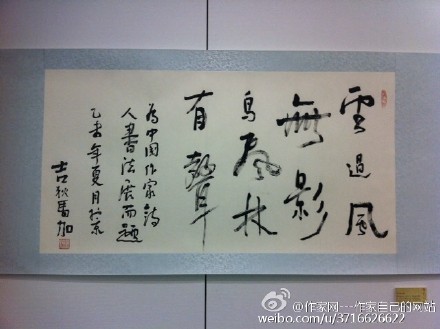 雲過風
無影
鳥林
有聲
為中國作家詩
人書法展而題
乙未年夏月於京
吉狄馬加
@作家网---作家自己的网站
weibo.com/u/3716626622